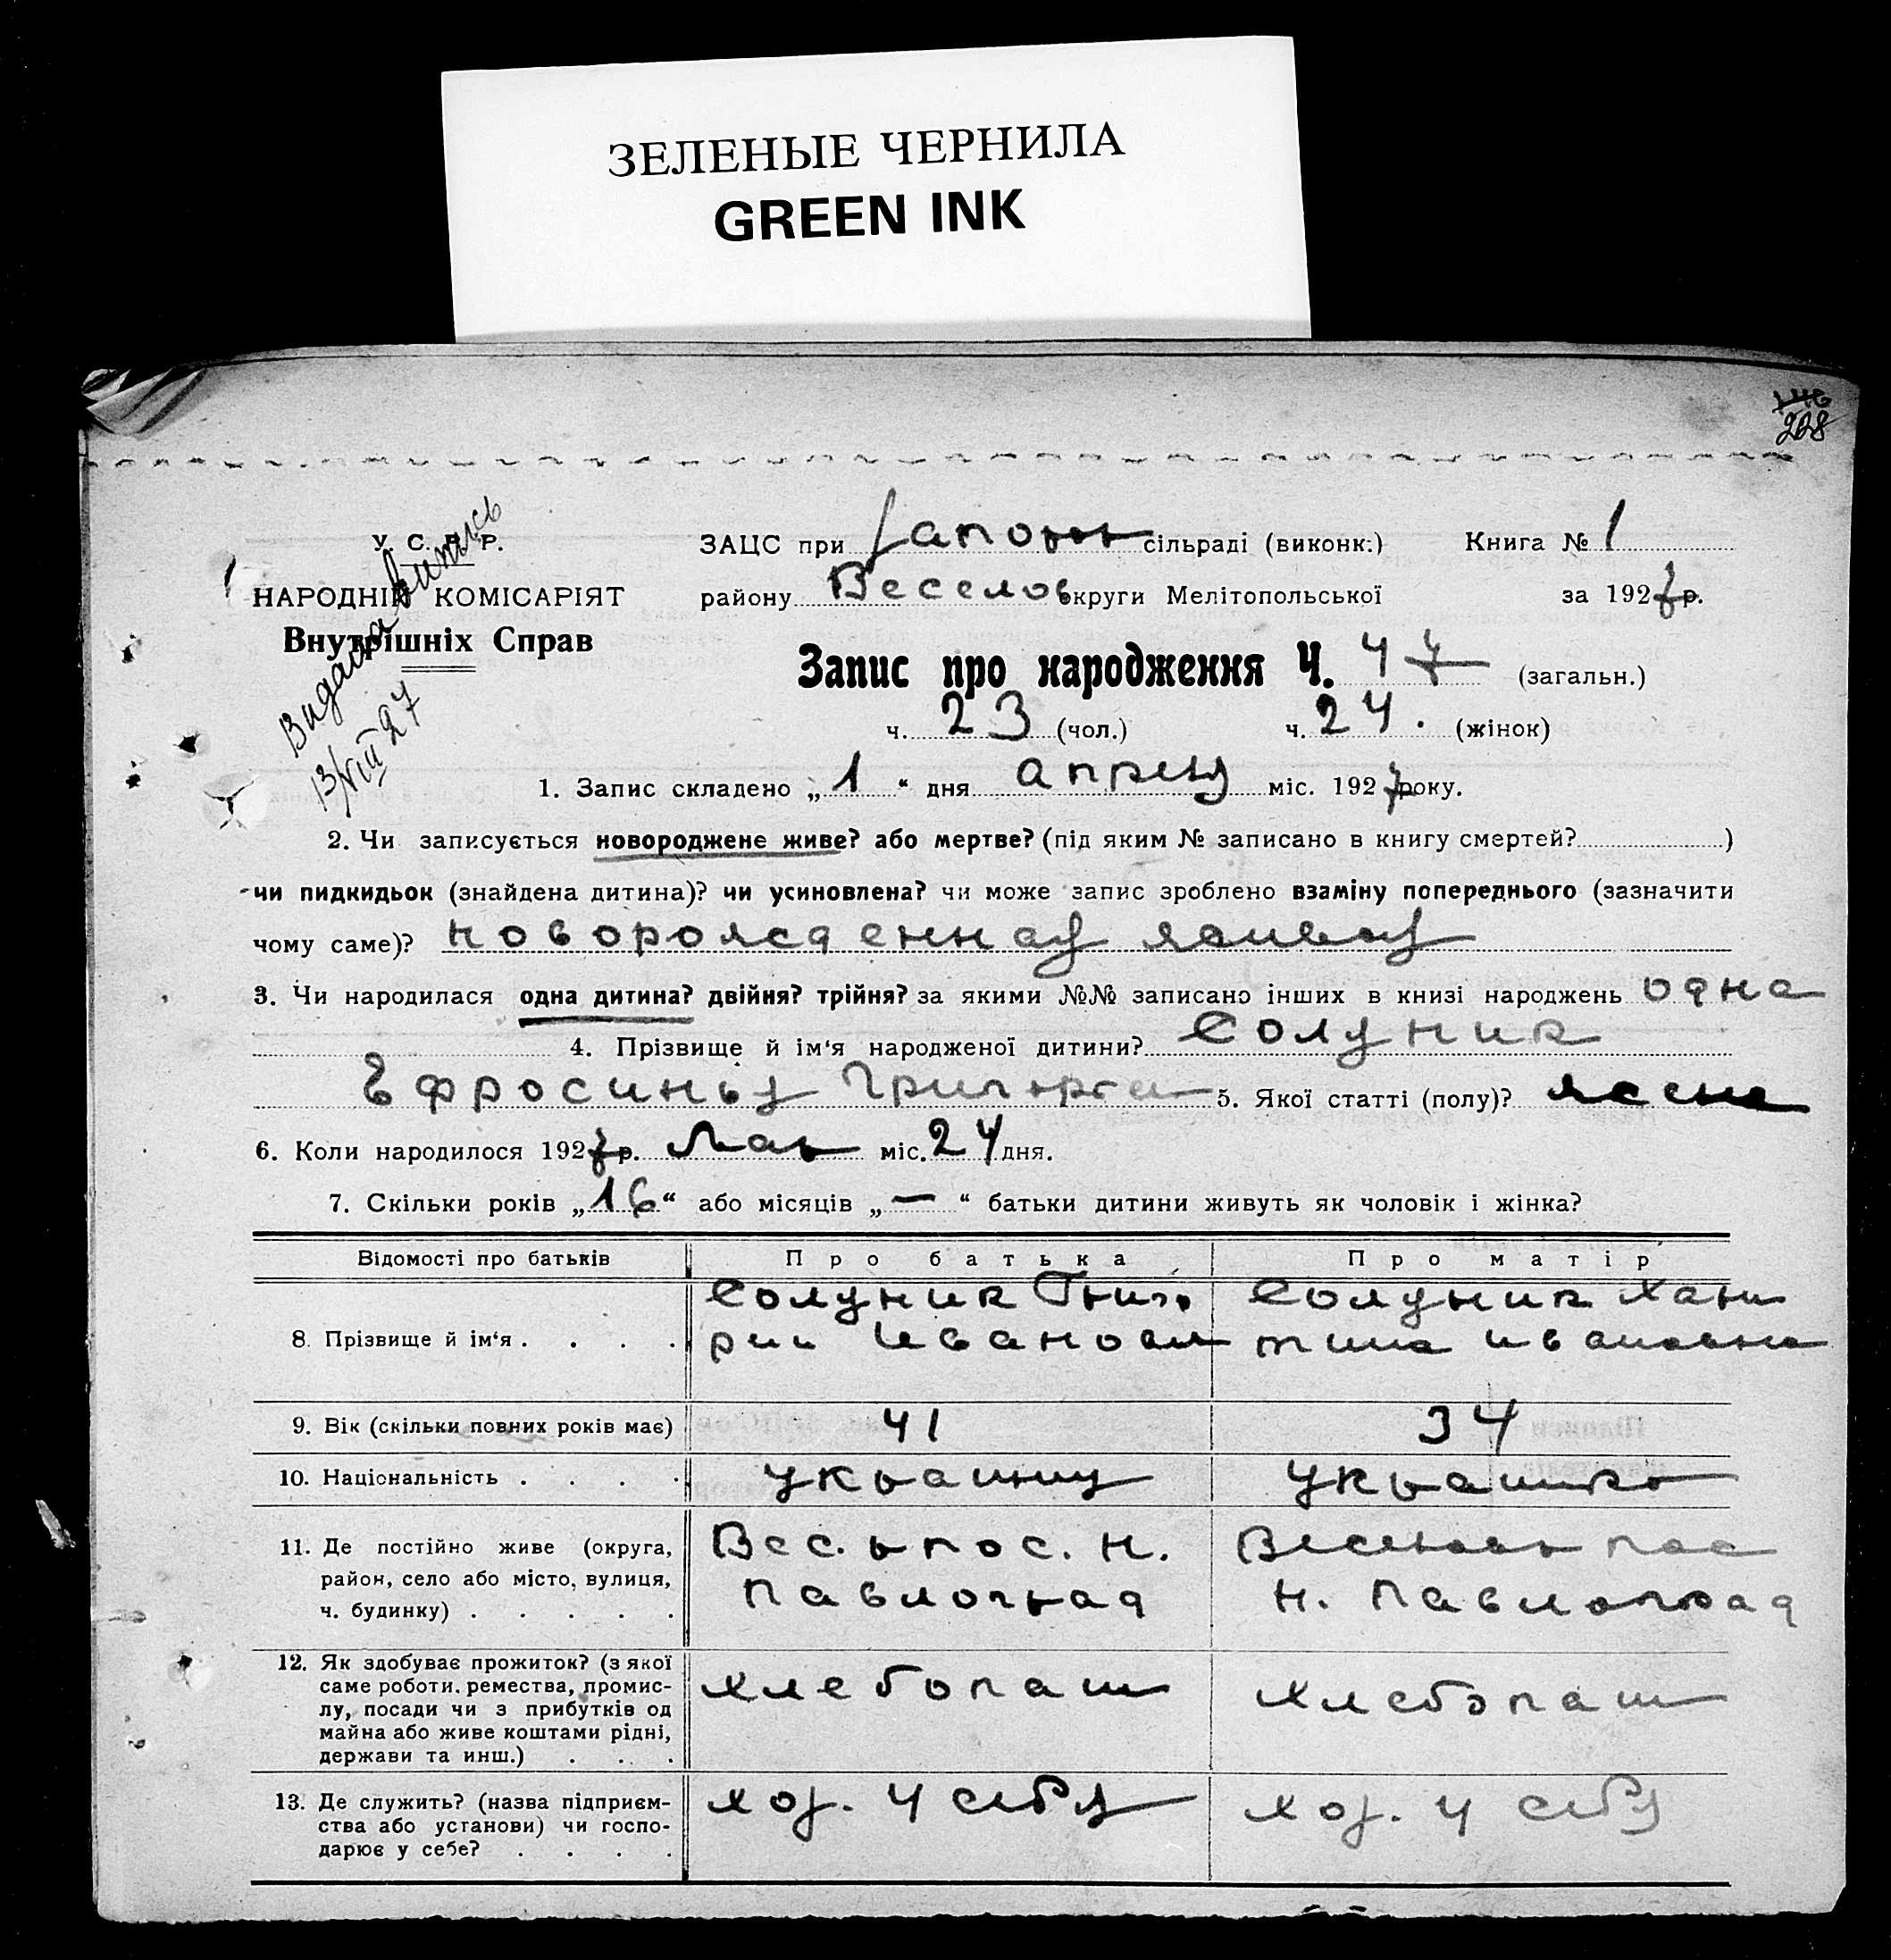 ЗЕЛЕНЫЕ ЧЕРНИЛА
GREEN INK
228
У. С. Р. Р.
НАРОДНІЙ КОМІСАРІЯТ
Внутрішніх Справ
Видана выпись
13/VIII 27
ЗАЦС при сільраді (виконк.) Книга № 1
району Веселов округи Мелітопольської за 1927 р.
Запис про народження Ч. 47 (загальн.)
ч. 23 (чол.) ч. 24. (жінок)
1. Запис складено „1“ дня апреля міс. 1927 року.
2. Чи записується новороджене живе? або мертве? (під яким № записано в книгу смертей?)
чи пидкидьок (знайдена дитина)? чи усиновлена? чи може запис зроблено взаміну попереднього (зазначити
чому саме)? новорожденная живая
3. Чи народилася одна дитина? двійня? трійня? за якими №№ записано інших в книзі народжень одна
4. Прізвище й ім‘я народженої дитини? Солуник
Ефросинья 5. Якої статті (полу)? жене
6. Коли народилося 1927 р. міс. 24 дня.
7. Скільки років „16“ або місяців „—“ батьки дитини живуть як чоловік і жінка?
Відомості про батьків Про батька Про матір
8. Прізвище й ім‘я . . . . Солуник Григо Солуник Хари
рий Иванови тина ивановна
9. Вік (скільки повних років має) 41 34
10. Національність . . . .
11. Де постійно живе (округа, Вес. р пос. Н. пос
район, село або місто, вулиця, Павлоград Н. Павлоград
ч. будинку) . . . . .
12. Як здобуває прожиток? (з якої
саме роботи, ремества, промис- хлебопаш хлебопаш
лу, посади чи з прибутків од
майна або живе коштами рідні,
держави та инш.) . . .
13. Де служить? (назва підприєм- хоз. у себя хоз. у себя
ства або установи) чи госпо-
дарює у себе? . . . .